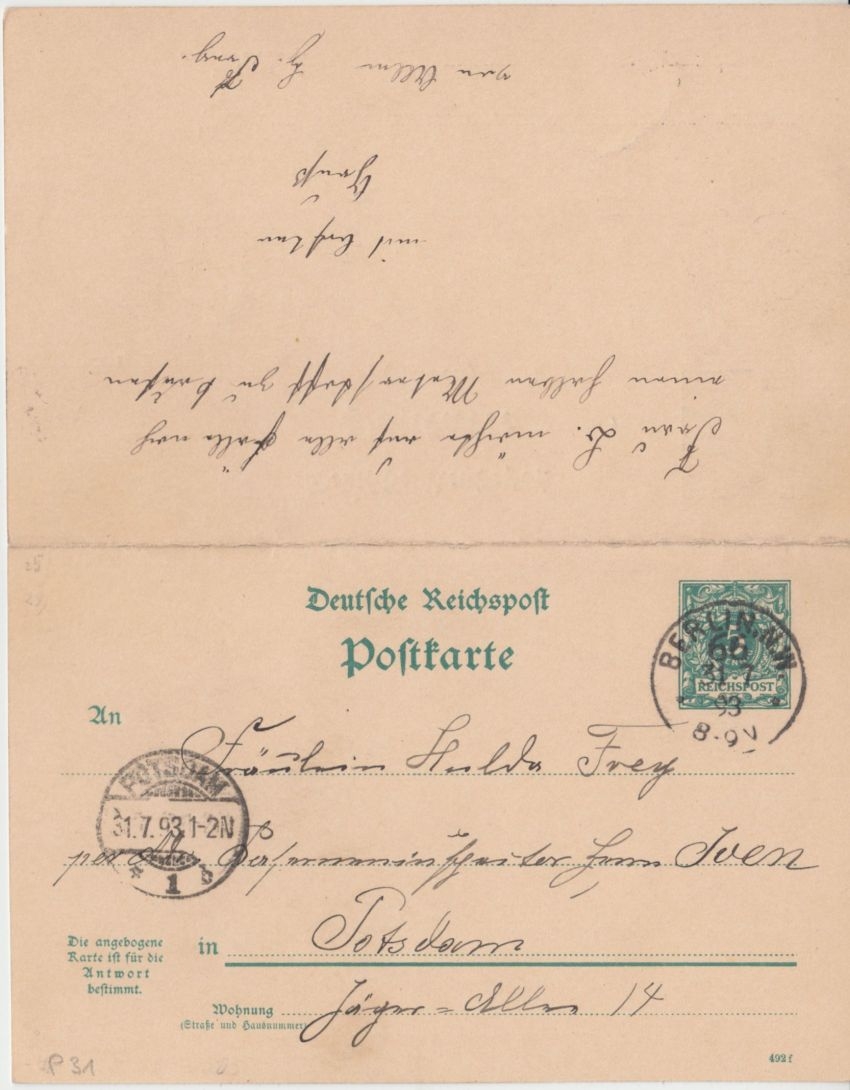 Frau L. möchte auf alle Fälle noch
einen halben Meter Stoff zu kaufen
mit besten
Gruß
von Allen H. Frey.
Deutsche Reichspost
Postkarte
BERLIN. N.W.
66
31 7
93
8-9V
REICHSPOST
An
Fräulein Hulda Frey
POTSDAM
31.7.93.1-2N
* 1 b
per Herrn Iven
in Potsdam
Die angebogene
Karte ist für die
Antwort
bestimmt.
Wohnung
(Straße und Hausnummer)
Jäger=Allee 14
P 31
492 f